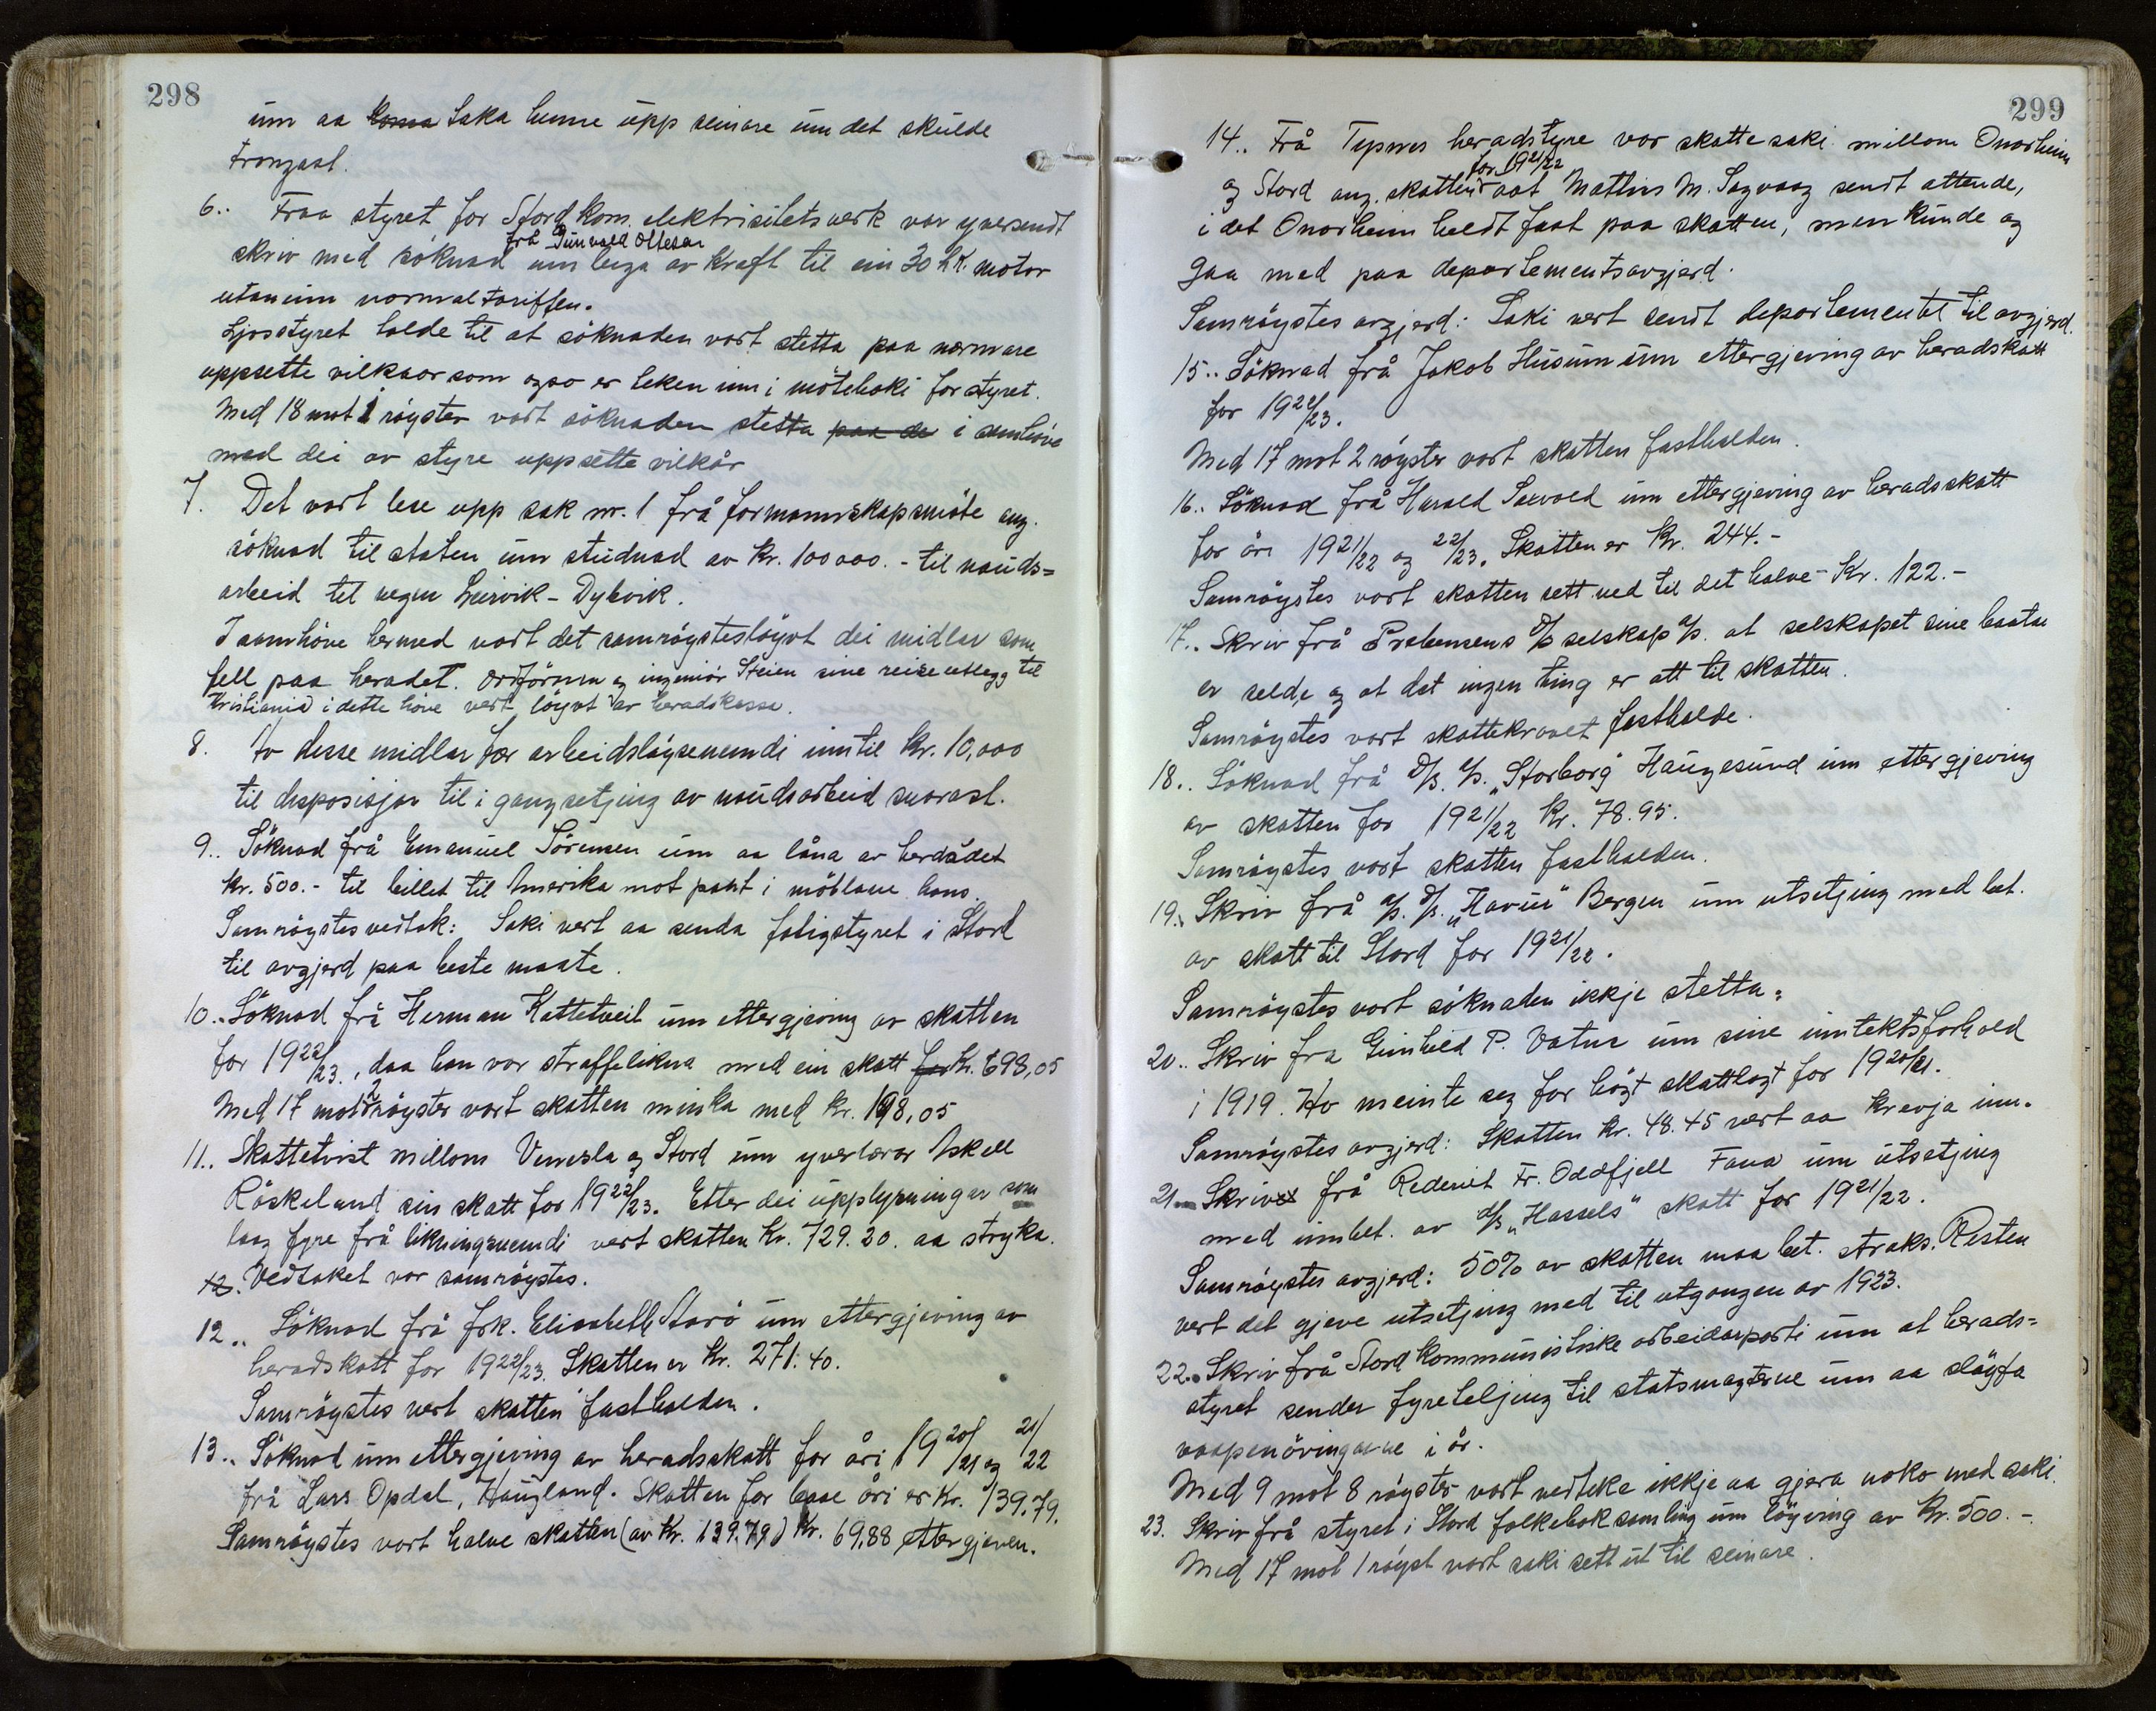 298
um aa koma taka henne upp seinare um det skulde
trongast.
6.. Fraa styret for Stord kom. elektrisitetsverk var yversendt
frå Gunvald Ollesen
skriv med söknad um leiga av kraft til ein 30 h.k. motor
utanum normaltariffen.
Ljosstyret holdt til at söknaden vart stetta paa nærmare
uppsette vilkaar som ogso er teken inn i möteboki for styret.
Med 18 mot 1 röyster vart söknaden stetta paa de i samhöve
med dei av styre uppsette vilkår
7. Det vart lese upp sak nr. 1 frå formannskapsmöte ang.
söknad til staten um studnad av kr. 100 000.- til nauds=
arbeid til vegen Leirvik - Dybvik.
I samhöve hermed vart det samröystes löyvt dei midlar som
fell paa heradet. Ordförmn og ingeniör Steien sine reiseutlegg til
Kristiania i dette höve vert löyvt av heradskassa.
8. Av desse midlar fær arbeidslöysenemndi inntil kr. 10,000
til disposisjon til i gangsetjing av naudsarbeid snarast.
9.. Söknad frå Emanuel Sörensen um aa låna av herdådet
kr. 500.- til billet til Amerika mot pant i möblane hans.
Samröystes vedtak: Saki vert aa senda fatigstyret i Stord
til avgjerd paa beste maate.
10.. Söknad frå Herman Kattetveit um ettergjeving av skatten
for 1922/23., daa han var straffelikna med ein skatt for kr. 698,05
Med 17 mot 2 röyster vart skatten minka med kr. 198,05
11.. Skattetvist millom Vennesla og Stord um yverlærar Askell
Röskeland sin skatt for 1922/23. Etter dei upplysningar som
laag fyre frå likningsnemndi vert skatten kr. 729.20. aa stryka.
12. Vedtaket var samröystes.
12.. Söknad frå frk. Elisabeth Starö um ettergjeving av
heradskatt for 1922/23. Skatten er kr. 271.40.
Samröystes vert skatten fastholden.
13.. Söknad um ettergjeving av heradsskatt for åri 1920/21 og 21/22
frå Lars Opdal, Haugland. Skatten for baae åri er kr. 139.79.
Samröystes vart halve skatten (av kr. 139.79) kr. 69,88 ettergjeven.
299
14.. Frå Tysnes heradstyre var skattesaki millom Onarheim
for 1921/22
og Stord ang. skatten aat Mathis M. Sagvaag sendt attende,
i det Onarheim heldt fast paa skatten, men kunde og
gaa med paa departementsavgjerd.
Samröystes avgjerd: Saki vert sendt departementet til avgjerd.
15.. Söknad frå Jakob Husum um ettergjeving av heradskatt
for 1922/23.
Med 17 mot 2 röyster vart skatten fastholden.
16.. Söknad frå Harald Saxvold um ettergjeving av heradsskatt
for åri 1921/22 og 22/23. Skatten er kr. 244.-
Samröystes vart skatten sett ned til det halve - Kr. 122.-
17.. Skriv frå Prebensens D/s selskap A/s. at selskapet sine baatar
er selde, og at det ingen ting er att til skatten.
Samröystes vart skattekravet fastholde.
18.. Söknad frå D/s. A/s. "Storborg" Haugesund um ettergjeving
av skatten for 1921/22 kr. 78.95.
Samröystes vart skatten fastholden.
19.. Skriv frå A/s. D/s. "Havur" Bergen um utsetjing med bet.
av skatt til Stord for 1921/22.
Samröystes vart söknaden ikkje stetta.
20.. Skriv fra Gunhild P. Vatne um sine inntektsforhold
i 1919. Ho meinte seg for högt skattlagt for 1920/21.
Samröystes avgjerd: Skatten kr. 48.45 vert aa krevja inn.
21.. Skriv frå Rederiet Fr. Oddfjell Fana um utsetjing
med innbet. av d/s "Hassels" skatt for 1921/22.
Samröystes avgjerd: 50% av skatten maa bet. straks. Resten
vert det gjeve utsetjing med til utgangen av 1923.
22.. Skriv frå Stord kommunistiske arbeidarparti um at herads=
styret sender fyreteljing til statsmagterne um aa slöyfa
vaapenövingarne i år.
Med 9 mot 8 röyster vart vedteke ikkje aa gjera noko med saki.
23. Skriv frå styret i Stord folkeboksamling um löyving av kr. 500.-.
Med 17 mot 1 röyst vart saki sett ut til seinare.